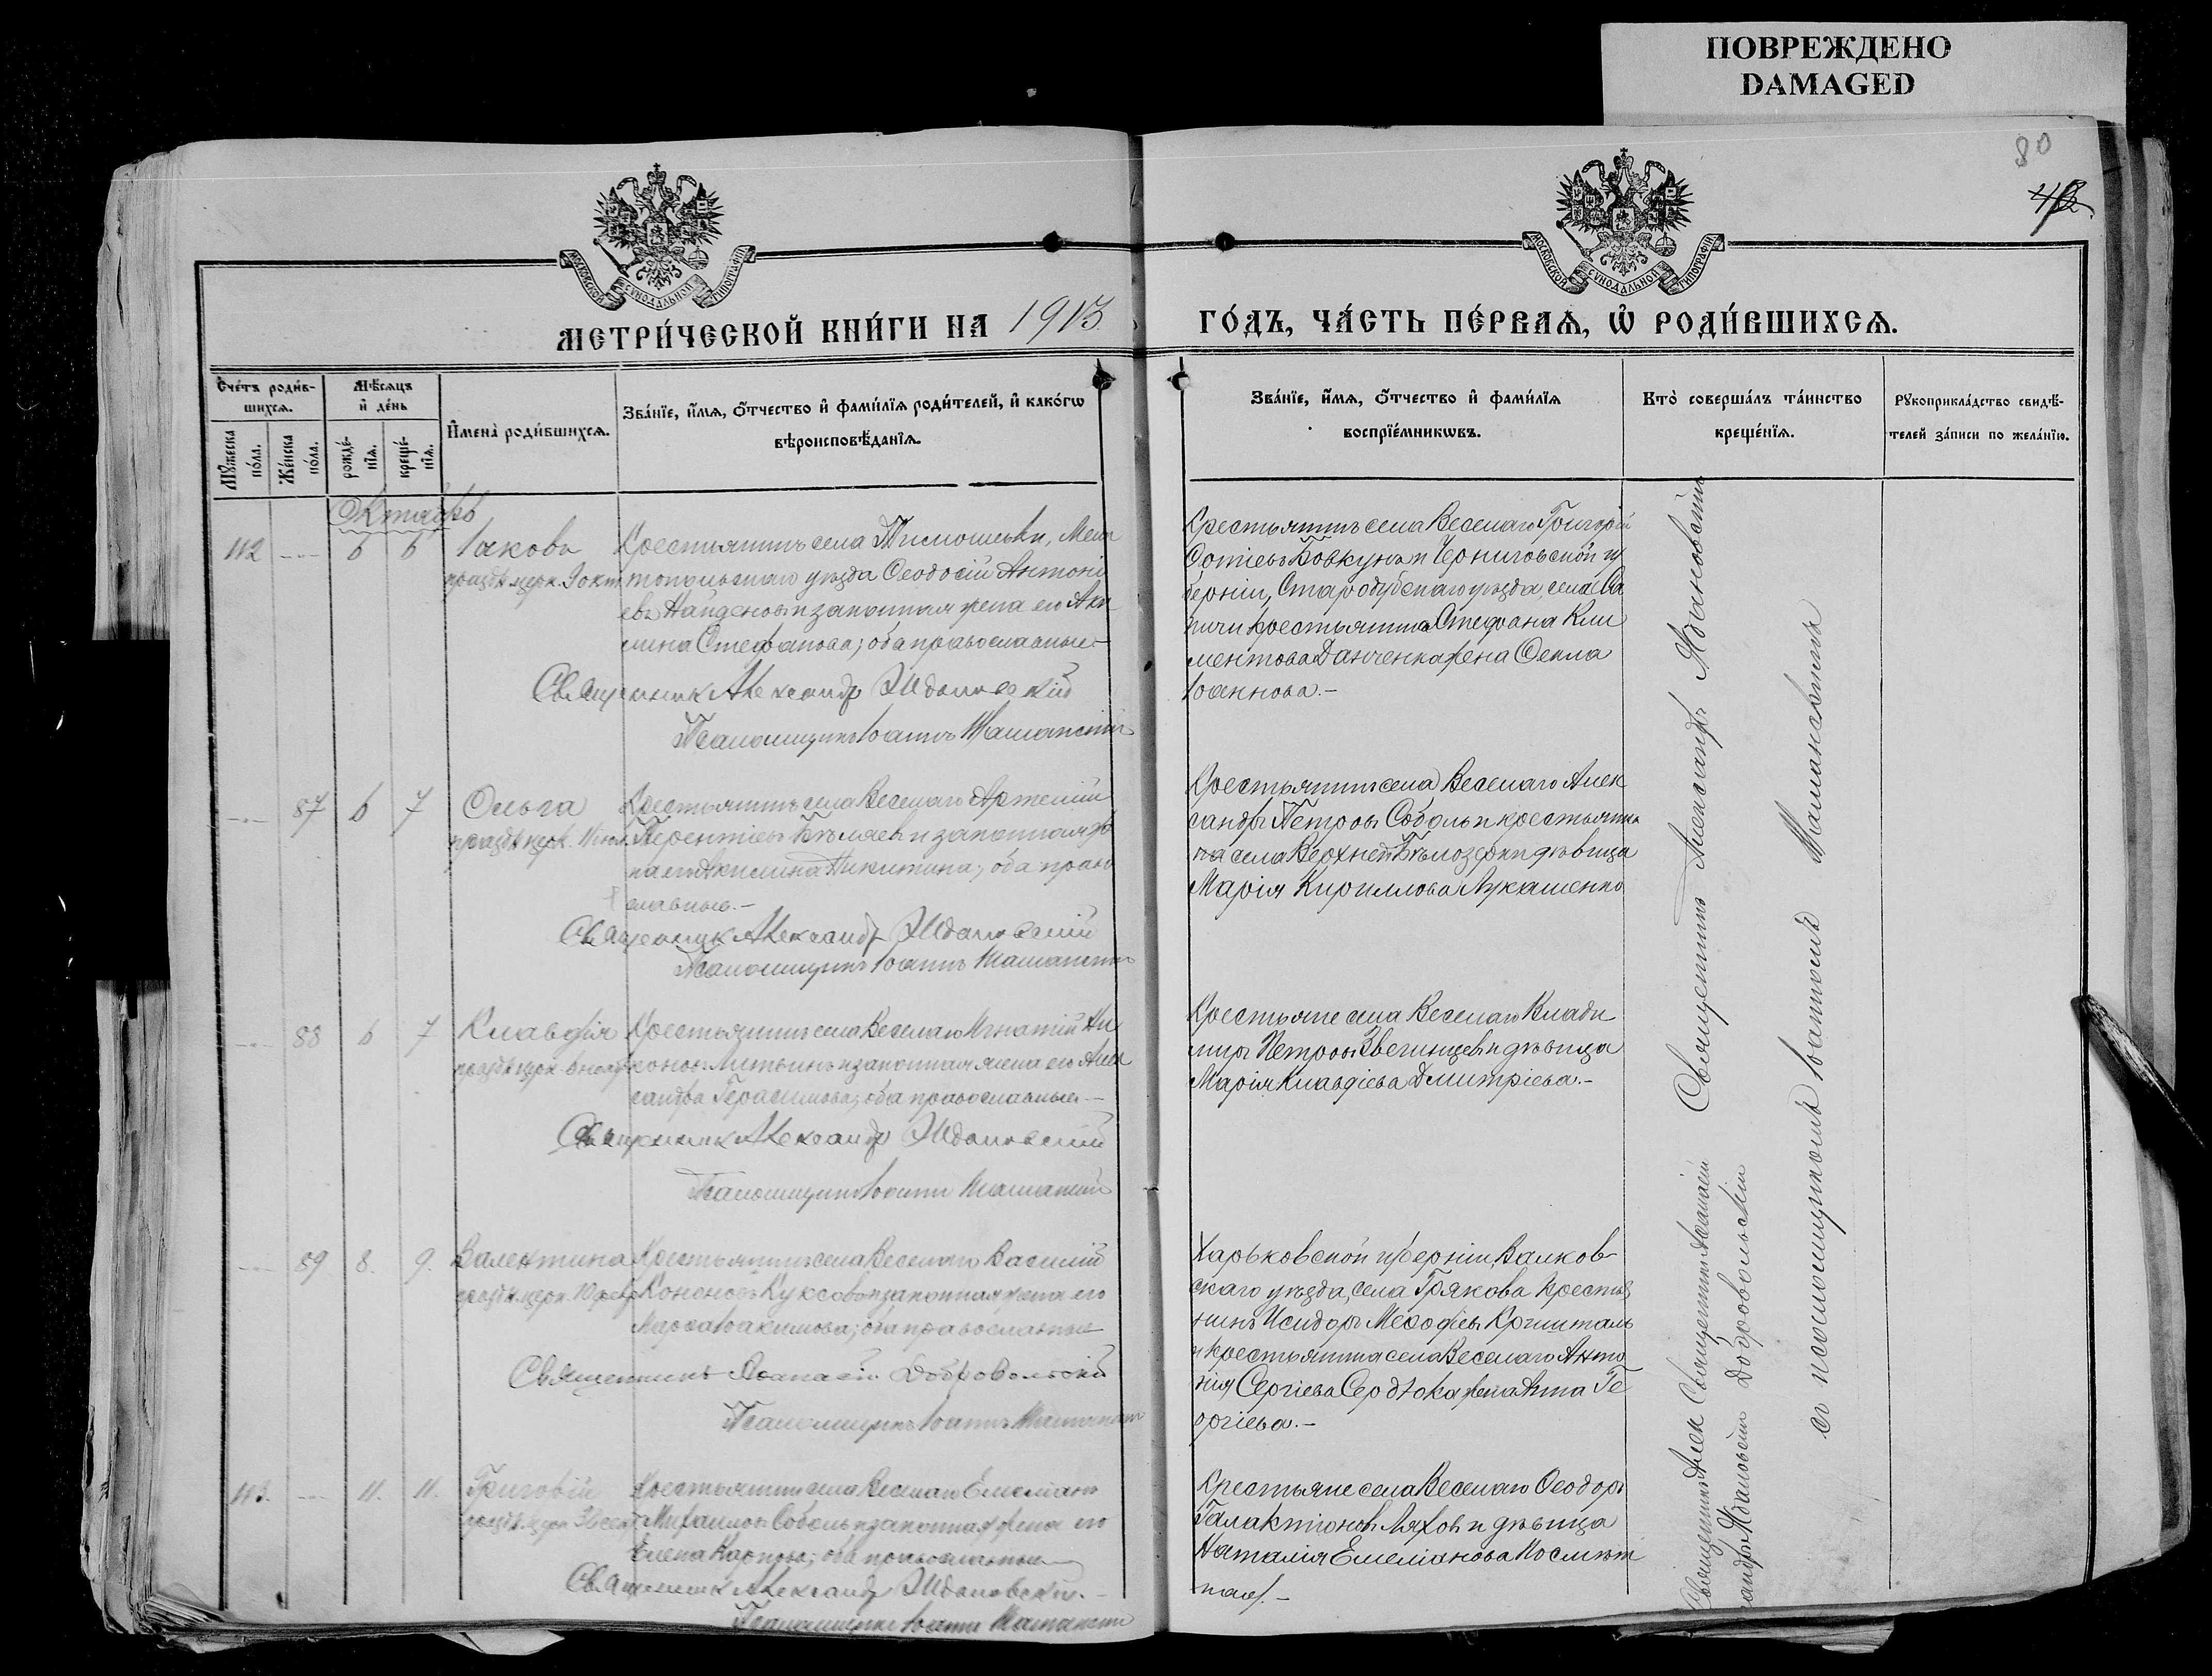 ПОВРЕЖДЕНО
DAMAGED
80
МОСКОВСКОЙ СѴНОДАЛЬНОЙ ТИПОГРАФІИ
МОСКОВСКОЙ СѴНОДАЛЬНОЙ ТИПОГРАФІИ
МЕТРИ́ЧЕСКОЙ КНИ́ГИ НА 1913
ГО́ДЪ, ЧА́СТЬ ПЕ́РВАЯ, Ѡ҆ РОДИ́ВШИХСЯ.
Сче́тъ роди́в-
шихся.
Мѣ́сяцъ
и҆ де́нь
Мꙋ́жеска
по́ла.
Же́нска
по́ла.
рожде́-
нїя.
креще́-
нїя.
И҆мена̀ роди́вшихся.
Зва́нїе, и҆́мя, ѻ҆́тчество и҆ фами́лїя роди́телей, и҆ како́гѡ
вѣроисповѣ́данїя.
Зва́нїе, и҆́мя, ѻ҆́тчество и҆ фами́лїя
воспрїе́мникѡвъ.
Кто̀ соверша́лъ та́инство
креще́нїя.
Рꙋкоприкла́дство свидѣ́-
телей за́писи по жела́нїю.
Октябрь
112 6 6 Іаковъ
праздн. церк. 9 окт
Крестьянинъ села Тимошевки, Мели
топольскаго уѣзда Ѳеодосій Антоні
евъ Найденовъ и законная жена его Аки
лина Стефанова; оба православные.-
Священник Александр Ждановский
Псаломщикъ Іоаннъ
Крестьянинъ села Веселаго Григорій
Фотіевъ Бовкунъ и Черниговской гу
берніи, Стародубскаго уѣзда, села Са
пичи крестьянина Стефана Кли
ментова Данченка жена Ѳекла
Іоаннова.-
87 6 7 Ольга
праздн. церк. 11 іюл.
Крестьянинъ села Веселаго Артемій
Терентіевъ Бѣляевъ и законная же
на его Акилина Никитина; оба право
славные.-
Священник Александр Ждановский
Псаломщикъ Іоаннъ
Крестьянинъ села Веселаго Алек
сандръ Петровъ Соболь и крестьянка
села Верхней Бѣлозерки дѣвица
Марія Кириллова Лукашенко
88 6 7 Клавдія
праздн. церк. 6 нояб
Крестьянинъ села Веселаго Игнатій Ни
коновъ Литвинъ и законная жена его Алек
сандра Герасимова; оба православные.-
Священник Александр Ждановский
Псаломщикъ Іоаннъ
Крестьяне села Веселаго Влади
миръ Петровъ Звегинцевъ и дѣвица
Марія Клавдіева Дмитріева.-
89 8. 9. Валентина
праздн. церк. 10 фев
Крестьянинъ села Веселаго Василій
Кононовъ Куксовъ и законная жена его
Марѳа Іоакимова; оба православные
Священникъ Аѳанасій Добровольскій
Псаломщикъ Іоаннъ
Харьковской губерніи, Валков-
скаго уѣзда, села Грякова крестья
нинъ Исидоръ Меѳодіевъ Кришталь
и крестьянина села Веселаго Анто
нія Сергіева Сердюка жена Анна Ге
оргіева.-
113. 11. 11. Григорій
Крестьянинъ села Веселаго Емеліанъ
Михаиловъ Соболь и законная жена его
Елена Карпова; оба православные
Священник Александр Ждановский.-
Псаломщикъ Іоаннъ
Крестьяне села Веселаго Ѳеодоръ
Галактіоновъ Ляховъ и дѣвица
Наталія Емеліанова
Священникъ Александръ Ждановскій
Священникъ Аѳанасій
Добровольскій
съ псаломщикомъ Іоанномъ